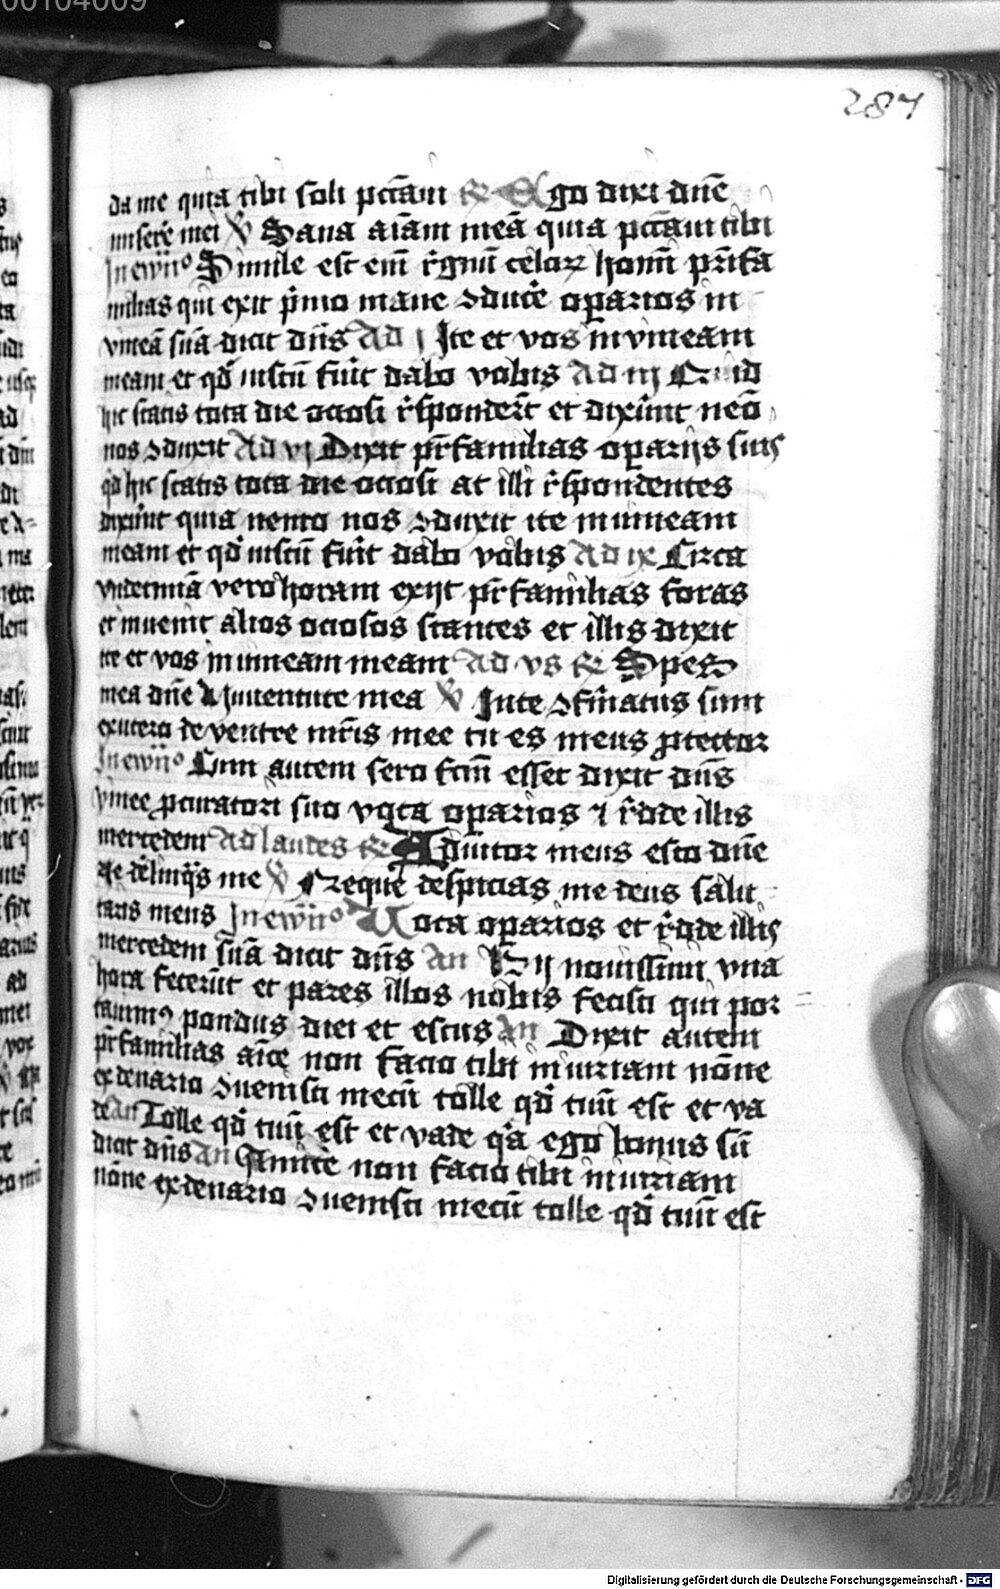 00104009
287
da me quia tibi soli pctāui R Ego dixi dñe
miserē mei V Sana aiām meā quia pctāui tibi
In ewāo Simile est eni rgnū celorꝝ homī pr̄ifa
milias qui exit pͥmo mane ꝯducē oparios in
vineā suā dicit dn̄s Ad j Ite et vos in vineam
meam et qd̄ iustū fuīt dabo vobis Ad iij Quid
hic statis tota die ociosi rn̄sponderūt et dixūnt nēo
nos ꝯduxit Ad vj Dixit pr̄familias oparijs suis
qd hic statis tota die ociosi at illi rn̄spondentes
dixūnt quia nemo nos ꝯduxit ite in vineam
meam et qd̄ iustū fuīt dabo vobis Ad ix Circa
vndecimā vero horam exijt pr̄familias foras
et inuenit alios ociosos stantes et illis dixit
ite et vos in vineam meam Ad vs R Spes
mea dn̄e a iuuentute mea V In te ꝯfir̄matus sum
ex vtero de ventre mr̄is mee tu es meus ꝓtector
In ewāo Cum autem sero fc̄m esset dixit dn̄s
vinee ꝓcuratori suo voca oparios ⁊ r̄dde illis
mercedem Ad laudes R Adiutor meus esto dn̄e
ne dēlinq̄s me V Neque despicias me deus salu
taris meus In ewāo Voca oparios et r̄dde illis
mercedem suā dicit dn̄s an Hij nouissimi vna
hora fecerūt et pares illos nobis fecisti qui por
tauimꝰ pondus diei et estus an Dixit autem
pr̄familias aīce non facio tibi iniuriam nōne
ex denario ꝯuenisti mecū tolle qd̄ tuū est et va
de an Tolle qd̄ tuū est et vade q̄a ego bonus sū
dicit dn̄s an Amice non facio tibi iniuriam
nōne ex denario ꝯuenisti mecū tolle qd̄ tuū est
Digitalisierung gefördert durch die Deutsche Forschungsgemeinschaft - DFG